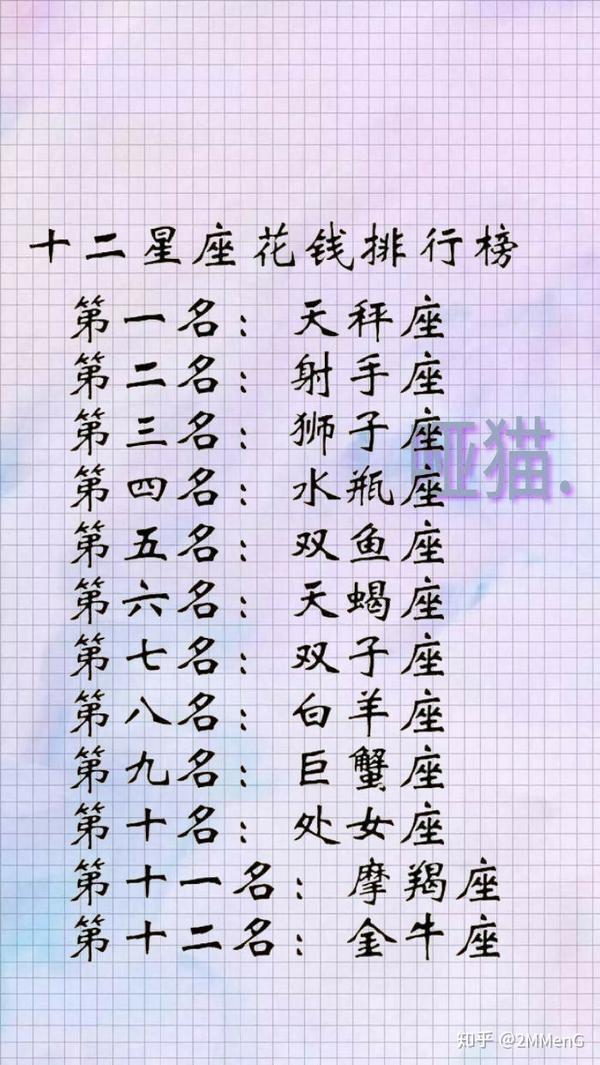 十二星座花钱排行榜
第一名：天秤座
第二名：射手座
第三名：狮子座
第四名：水瓶座
第五名：双鱼座
第六名：天蝎座
第七名：双子座
第八名：白羊座
第九名：巨蟹座
第十名：处女座
第十一名：摩羯座
第十二名：金牛座
哑猫.
知乎 @2MMenG